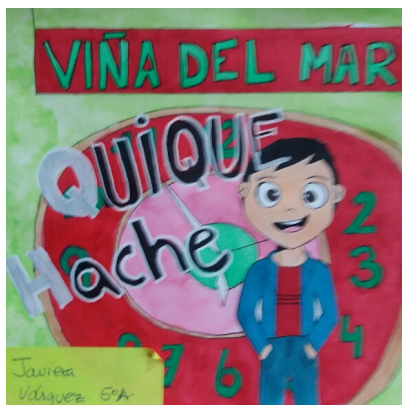 VIÑA DEL MAR
QUIQUE
Hache
2
3
4
6
7
Javiera
Vásquez 6ºA